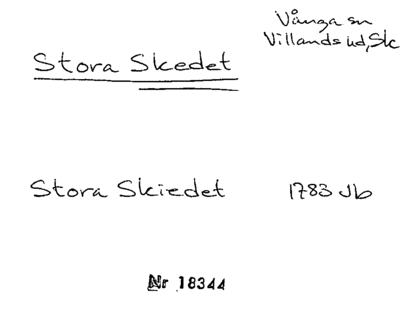 Vånga sn
Villands hd, Sk
Stora Skedet
Stora Skiedet 1783 Jb
Nr 18344